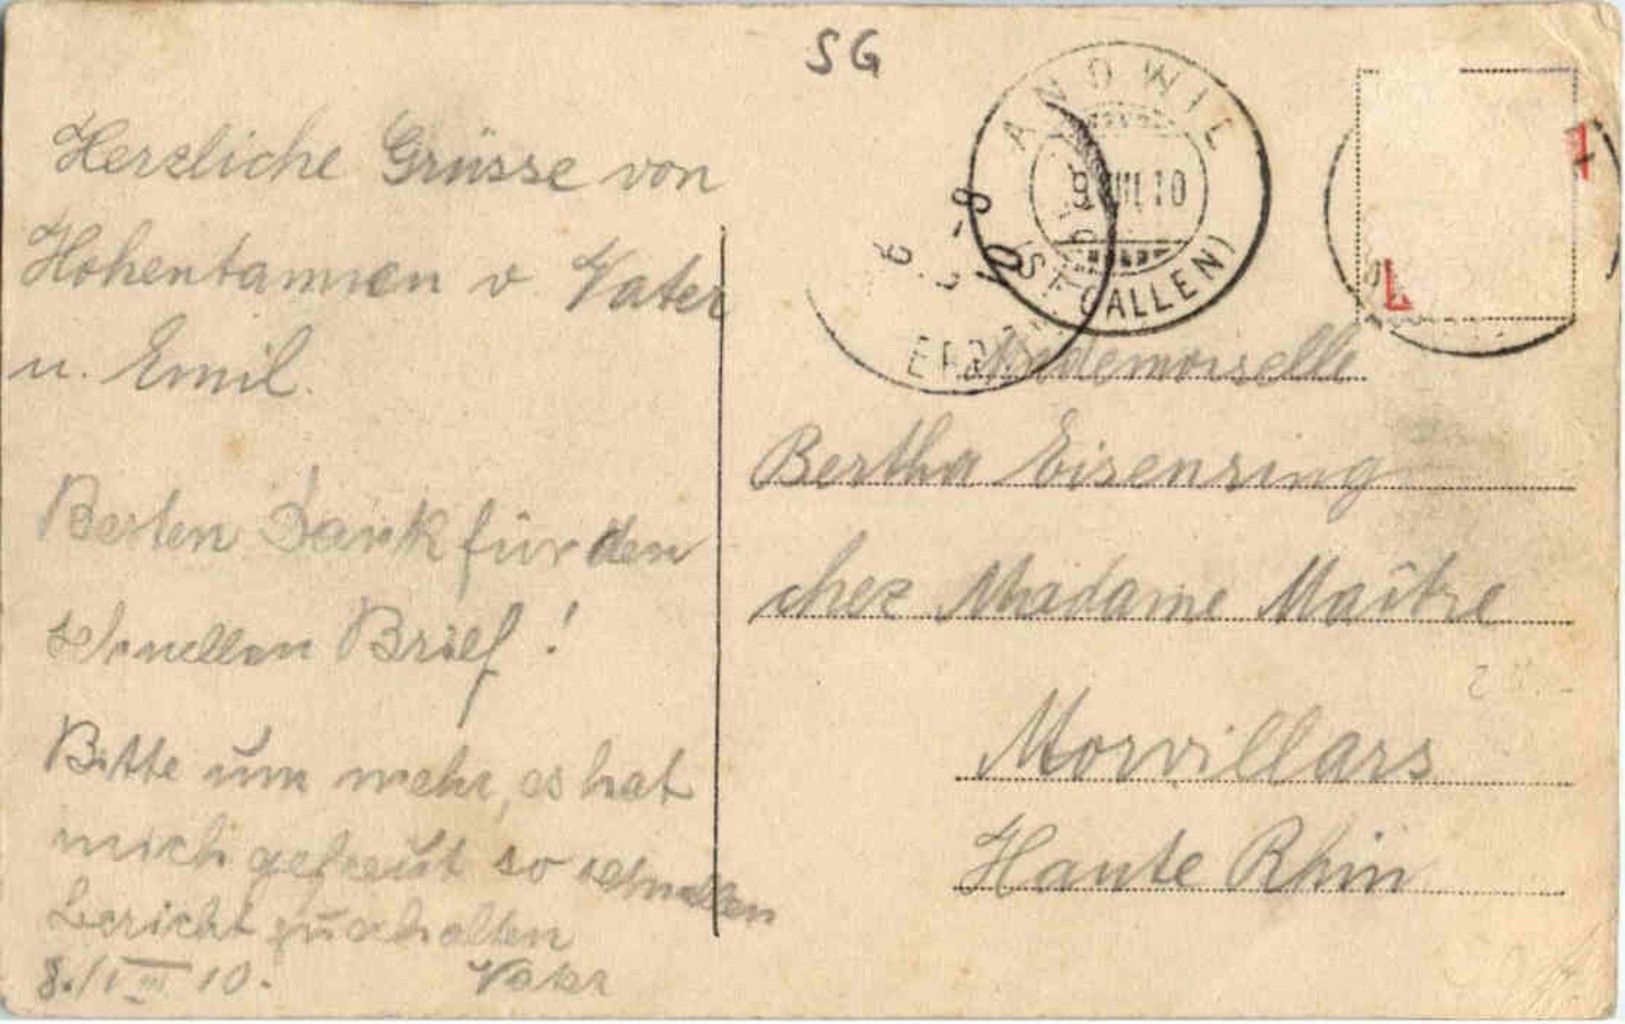 SG
ANDWIL
9.VIII.10
(ST. GALLEN)
Herzliche Grüsse von
Hohentannen v. Vater
u. Emil.
Besten Dank für den
schnellen Brief!
Bitte um mehr, es hat
mich gefreut so schnellen
Bericht zu erhalten
8./VIII 10. Vater
Mademoiselle
Bertha Eisenring
chez Madame Maître
Morvillars
Haute Rhin